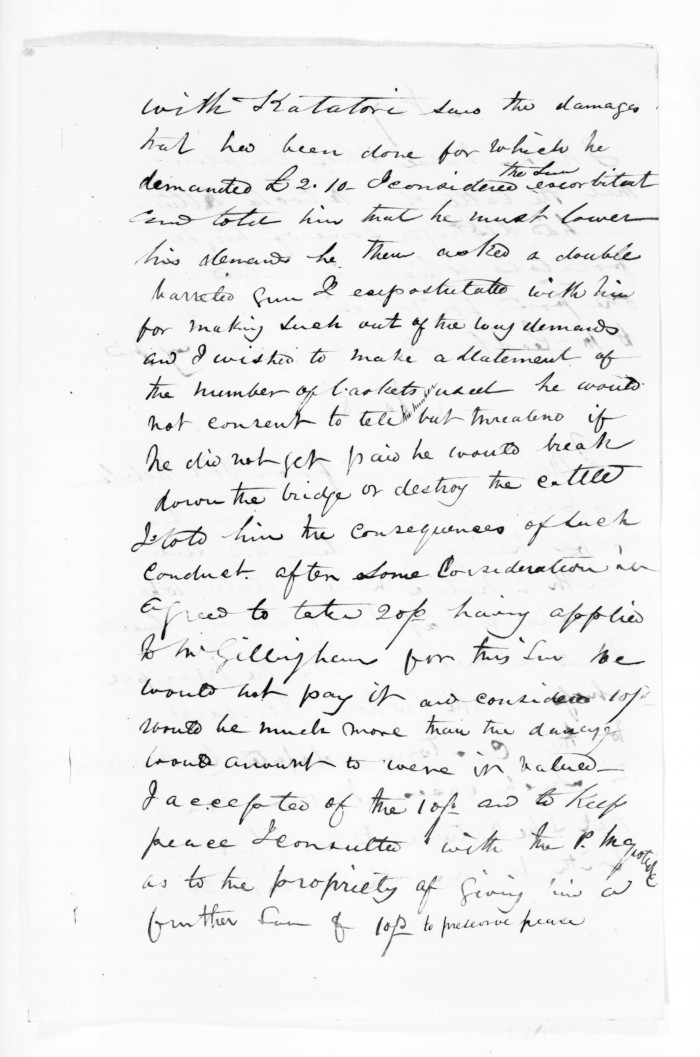 with Katatori saw the damages
that had been done for which he
demanded £2.10- I considered the Sum escorbitant
and told him that he must lower
his demands he then asked a double
barreled gun I expostulated with him
for making such out of the way demands
and I wished to make a statement of
the number of baskets used he would
not consent to tell the number but threatend if
he did not get paid he would break
down the bridge or destroy the cattle
I told him the consequences of such
conduct. after some Consideration he
agreed to take 20/- having applied
to Mr Gillingham for this Sum he
would not pay it and considered 10/-
would be much more than the damage
would amount to were it valued-
I accepted of the 10/- and to Keep
peace I consulted with the P. Magistrate
as to the propriety of giving him a
further Sum of 10/- to preserve peace